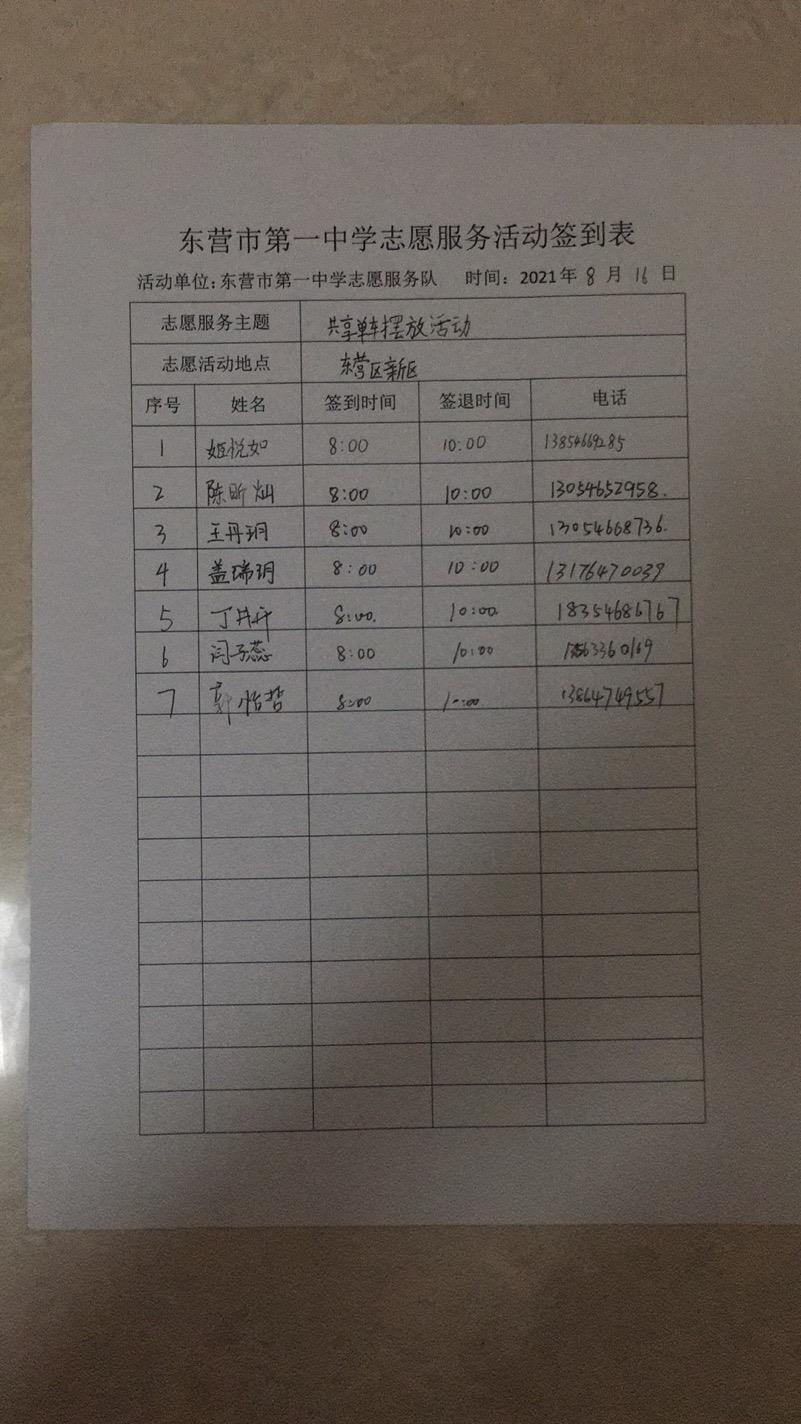 东营市第一中学志愿服务活动签到表
活动单位:东营市第一中学志愿服务队 时间:2021年 8 月 16 日
志愿服务主题 共享单车摆放活动
志愿活动地点 东营区新区
序号 姓名 签到时间 签退时间 电话
1 姬悦如 8:00 10:00 13854669285
2 陈昕灿 8:00 10:00 13054652958.
3 王丹玥 8:00 10:00 13054668736.
4 盖瑞玥 8:00 10:00 13176470039
5 8:00. 10:00 18354686767
6 闫子蕊 8:00 10:00
7 郭怡哲 8:00 10:00 13864749557